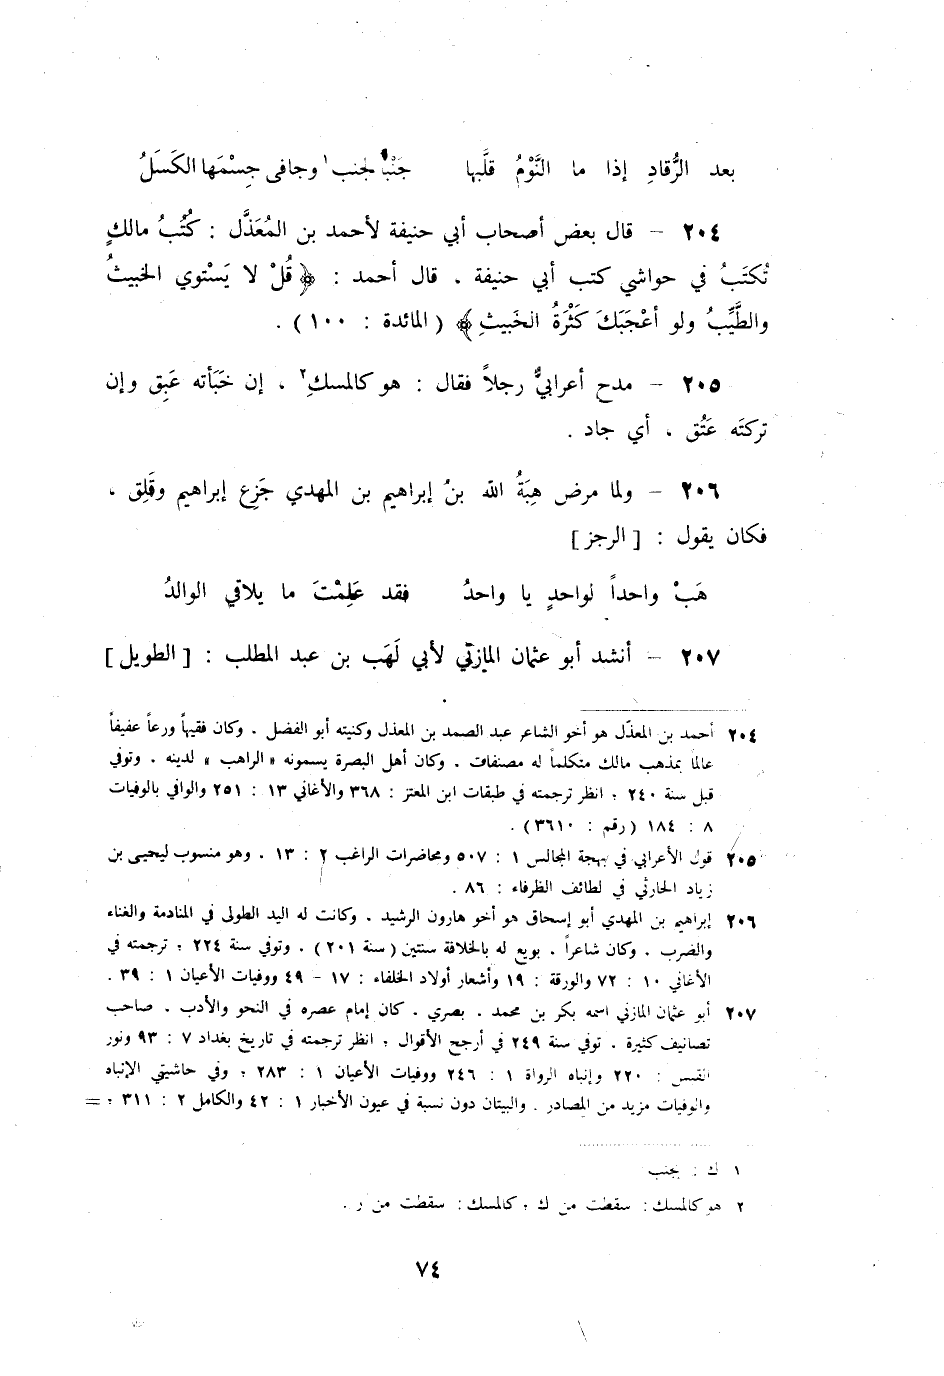 بعد الرُّقادِ إذا ما النَّوْمُ قلَّبها جَنْباً لجنب١ وجافى جِسْمَها الكَسَلُ
٢٠٤ – قال بعض أصحاب أبي حنيفة لأحمد بن المُعَذَّل : كُتُبُ مالكٍ
تُكتَبُ في حواشي كتب أبي حنيفة . قال أحمد : ﴿ قُلْ لا يَسْتوي الخبيثُ
والطَّيِّبُ ولو أعْجَبَكَ كَثْرَةُ الخَبيثِ ﴾ ( المائدة : ١٠٠ ) .
٢٠٥ – مدح أعرابيٌّ رجلاً فقال : هو كالمسكِ٢ ، إن خَبَأته عَبِق وإن
تركتَه عَتُق ، أي جاد .
٢٠٦ – ولما مرض هِبَةُ الله بنُ إبراهيم بن المهدي جَزِع إبراهيم وقَلِق ،
فكان يقول : [ الرجز ]
هَبْ واحداً لواحدٍ يا واحدُ فقد عَلِمْتَ ما يلاقي الوالدُ
٢٠٧ – أنشد أبو عثمان المازني لأبي لَهَب بن عبد المطلب : [ الطويل ]
٢٠٤ أحمد بن المعذّل هو أخو الشاعر عبد الصمد بن المعذل وكنيته أبو الفضل . وكان فقيهاً ورعاً عفيفاً
عالماً بمذهب مالك متكلماً له مصنفات . وكان أهل البصرة يسمونه « الراهب » لدينه . وتوفي
قبل سنة ٢٤٠ ؛ انظر ترجمته في طبقات ابن المعتز : ٣٦٨ والأغاني ١٣ : ٢٥١ والوافي بالوفيات
٨ : ١٨٤ ( رقم : ٣٦١٠ ) .
٢٠٥ قول الأعرابي في بهجة المجالس ١ : ٥٠٧ ومحاضرات الراغب ٢ : ١٣ . وهو منسوب ليحيى بن
زياد الحارثي في لطائف الظرفاء : ٨٦ .
٢٠٦ إبراهيم بن المهدي أبو إسحاق هو أخو هارون الرشيد . وكانت له اليد الطولى في المنادمة والغناء
والضرب . وكان شاعراً . بويع له بالخلافة سنتين ( سنة ٢٠١ ) . وتوفي سنة ٢٢٤ ؛ ترجمته في
الأغاني ١٠ : ٧٢ والورقة : ١٩ وأشعار أولاد الخلفاء : ١٧ – ٤٩ ووفيات الأعيان ١ : ٣٩ .
٢٠٧ أبو عثمان المازني اسمه بكر بن محمد . بصري . كان إمام عصره في النحو والأدب . صاحب
تصانيف كثيرة . توفي سنة ٢٤٩ في أرجح الأقوال ؛ انظر ترجمته في تاريخ بغداد ٧ : ٩٣ ونور
القبس : ٢٢٠ وإنباه الرواة ١ : ٢٤٦ ووفيات الأعيان ١ : ٢٨٣ ؛ وفي حاشيتي الإنباه
والوفيات مزيد من المصادر . والبيتان دون نسبة في عيون الأخبار ١ : ٤٢ والكامل ٢ : ٣١١ ؛ =
١ ك : بجنب
٢ هو كالمسك : سقطت من ك ؛ كالمسك : سقطت من ر .
٧٤